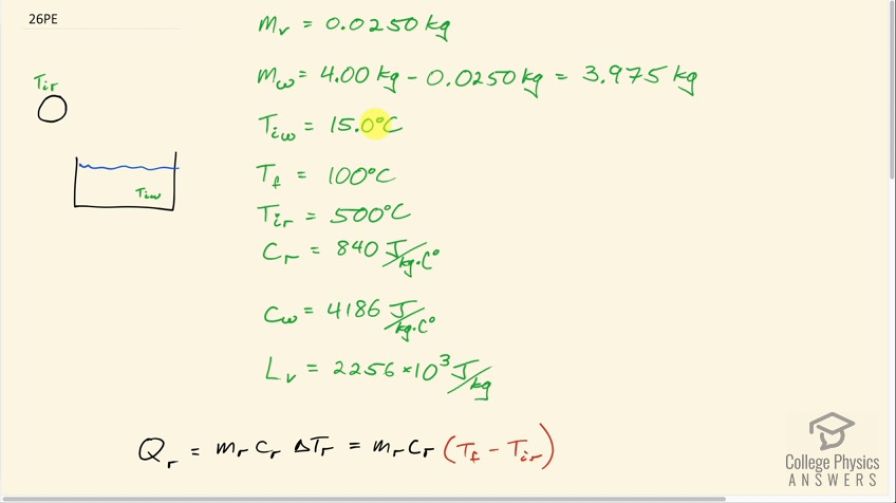 26PE
m_v = 0.0250 kg
m_w = 4.00 kg - 0.0250 kg = 3.975 kg
T_ir
T_iw = 15.0°C
T_f = 100°C
T_iw
T_ir = 500°C
C_r = 840 J/kg·C°
C_w = 4186 J/kg·C°
L_v = 2256 × 10³ J/kg
Q_r = m_r C_r ΔT_r = m_r C_r (T_f - T_ir)
College Physics
ANSWERS